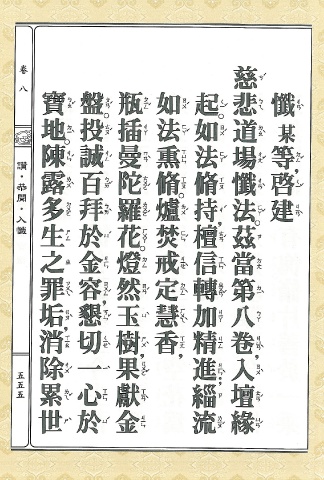 懺
某等，啓建
慈悲道場懺法。茲當第八卷，入壇緣
起。如法脩持，檀信轉加精進；緇流
如法熏脩。爐焚戒定慧香，
瓶插曼陀羅花。燈然玉樹，果獻金
盤。投誠百拜於金容，懇切一心於
寶地。陳露多生之罪垢，消除累世
卷八
讚・恭聞・入懺
五五五